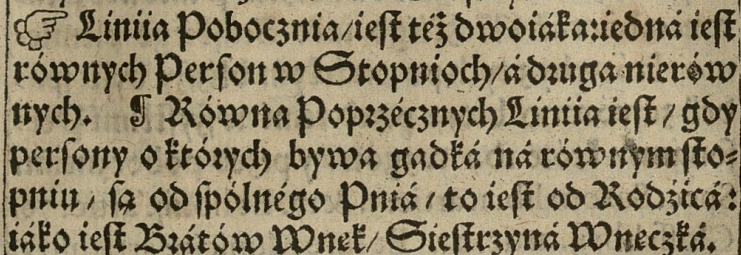 ☞ Liniia Pobocznia/ iest też dwoiáka: iedná iest
równych Person w Stopnioch/ á druga nierów
nych. ¶ Równa Poprzécznych Liniia iest / gdy
persony o których bywa gadká ná równym sto⸗
pniu / są od spólnégo Pniá / to iest od Rodzicá:
iáko iest Brátów Wnek/ Siestrzyná Wneczká.